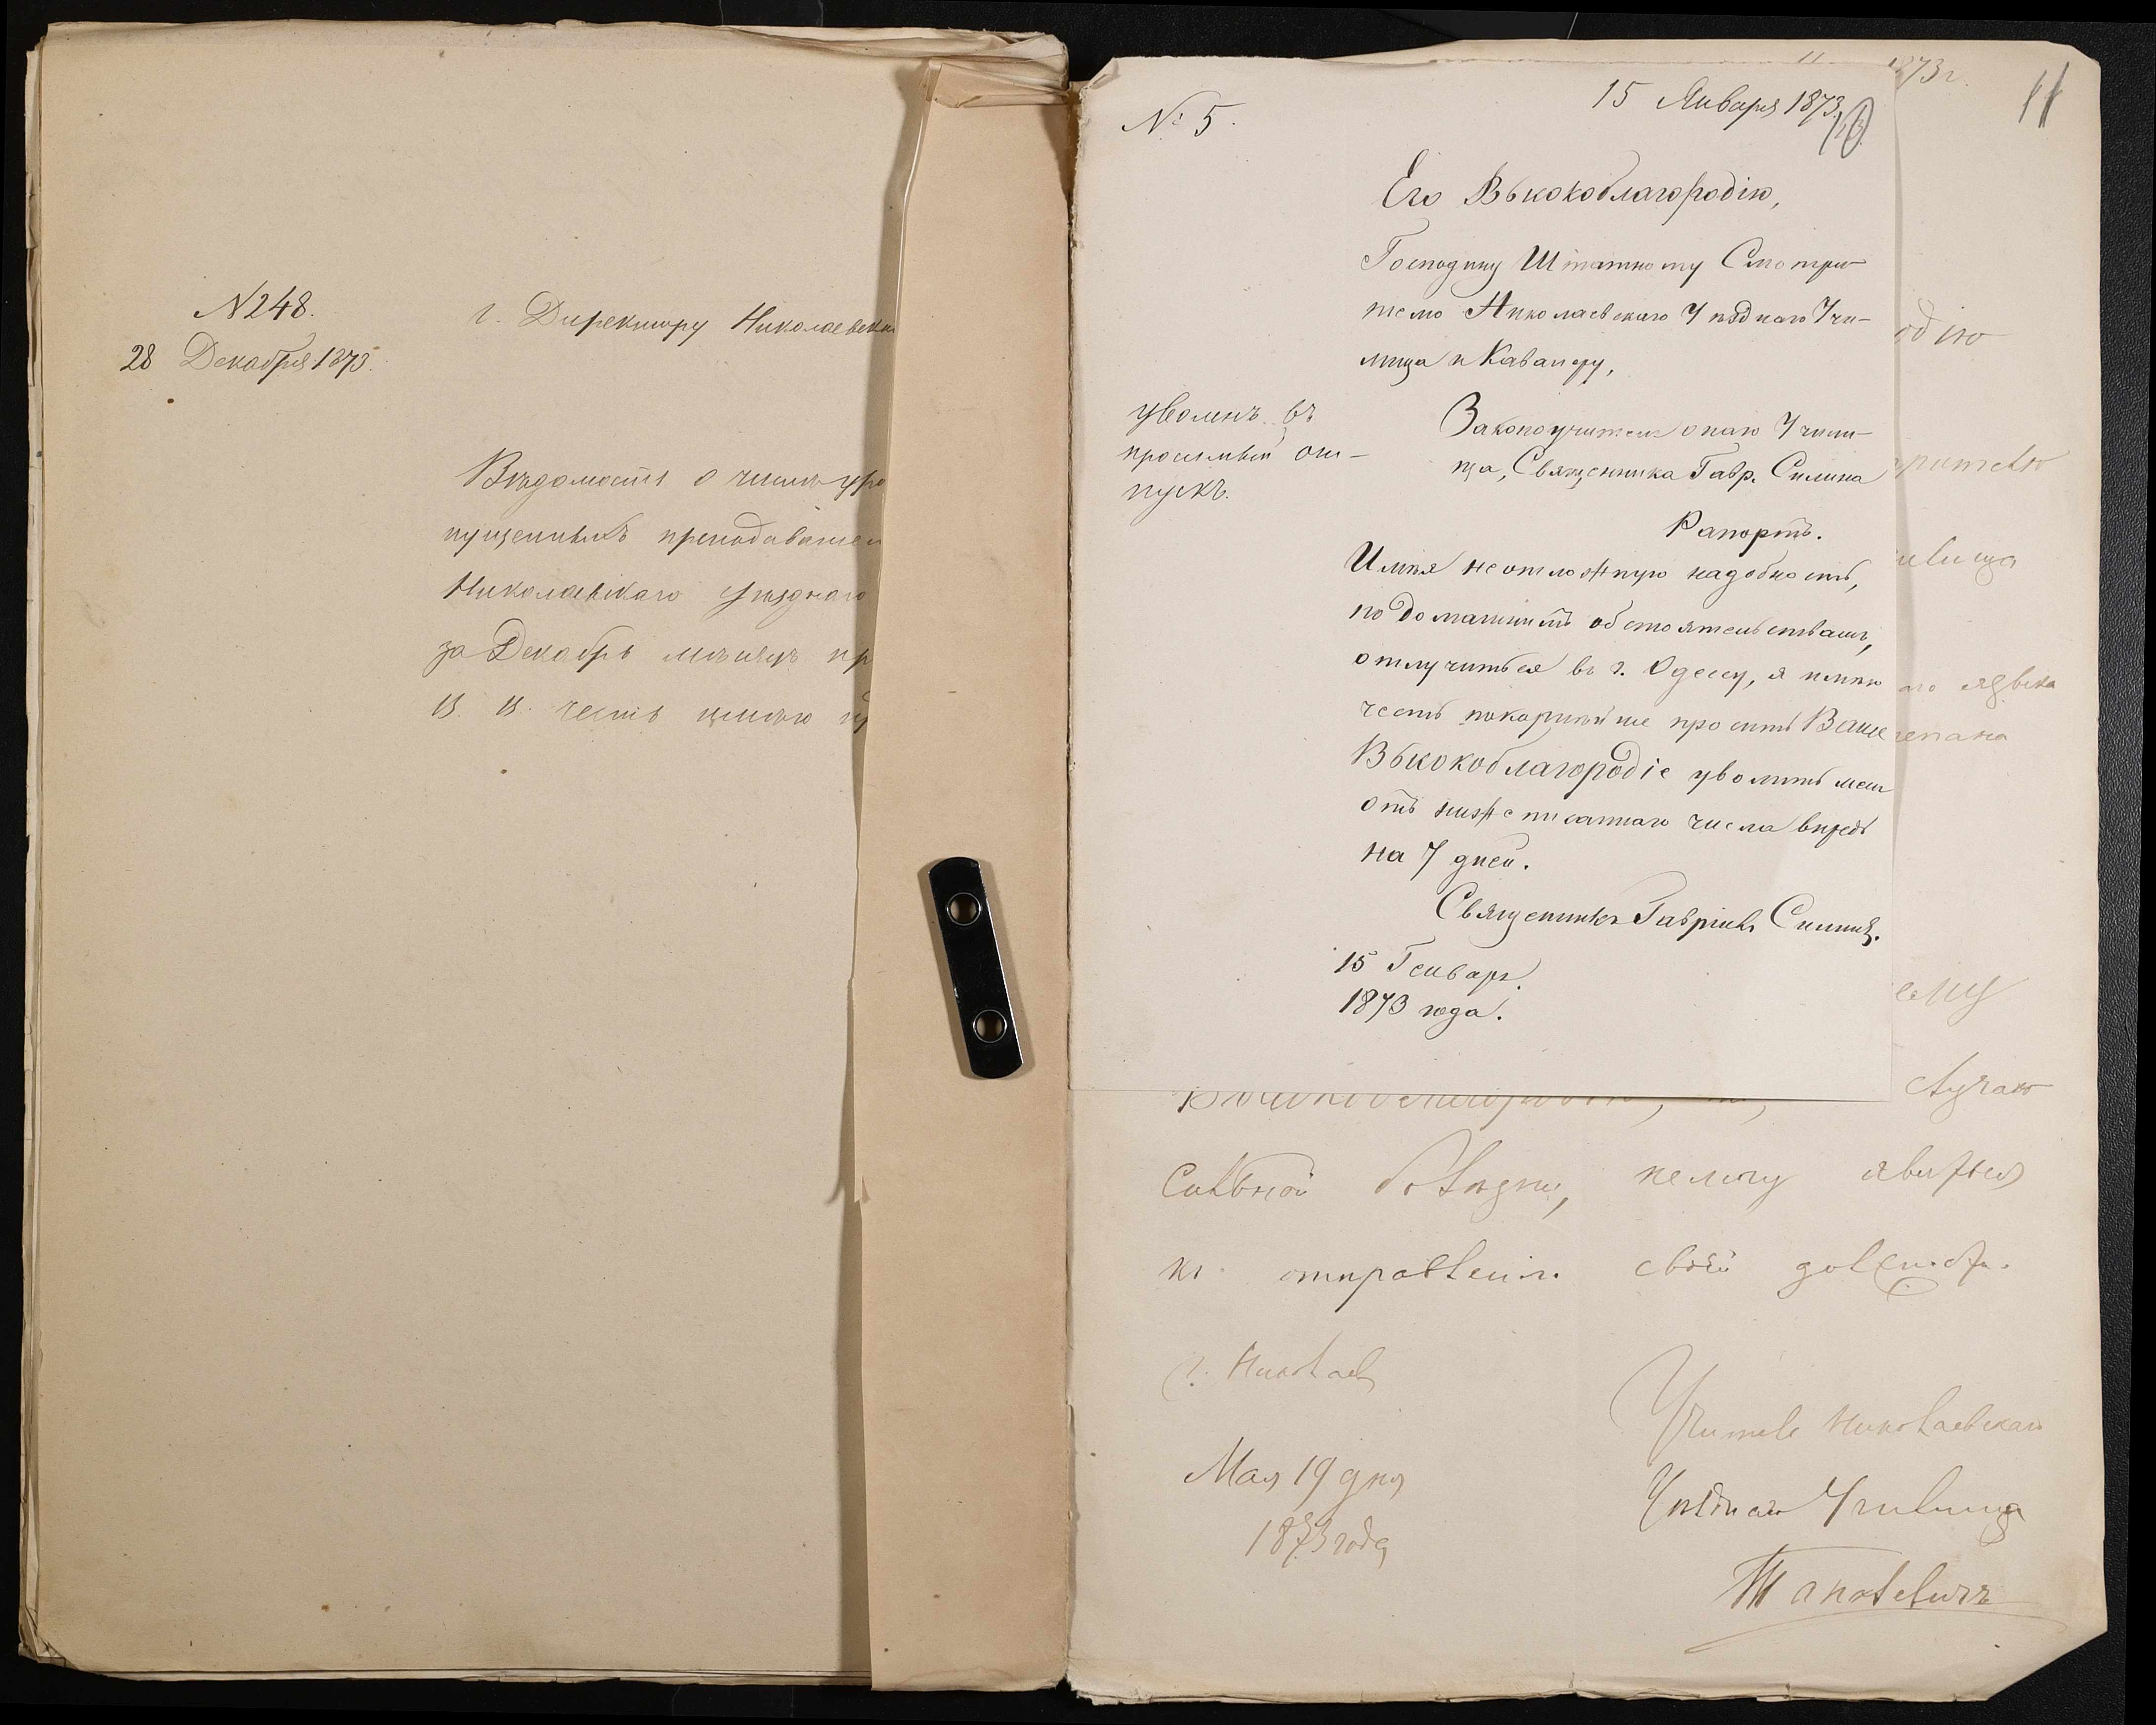 № 248.
28 Декабря 1873.
г. Директору Николаевско
Вѣдомость о числѣ уро
пущенныхъ преподавател
Николаевскаго Уѣзднаго
за Декабрь мѣсяцъ пр
В. В. честь имѣю пр
1873 г.
11
№ 5.
15 Января 1873
10
Его Высокоблагородію,
Господину Штатному Смотри-
телю Николаевскаго Уѣзднаго Учи-
лища и Кавалеру,
уволенъ въ
просимый от-
пускъ.
Законоучителя онаго Учили-
ща, Священника Гавр. Силина
Рапортъ.
Имѣя неотложную надобность,
по домашнимъ обстоятельствамъ,
отлучиться въ г. Одессу, я имѣю
честь покорнѣйше просить Ваше
Высокоблагородіе уволить меня
отъ нижеписаннаго числа впредь
на 7 дней.
Священникъ Гавріилъ Силинъ.
15 Генваря
1873 года.
одію
рителю
илища
аго языка
епана
ему
Высокоблагородію,
случаю
сильной болѣзни, немогу явиться
къ отправленію своей должности.
г. Николаевъ
Мая 19 дня
1873 года
Учитель Николаевскаго
Уѣзднаго Училища